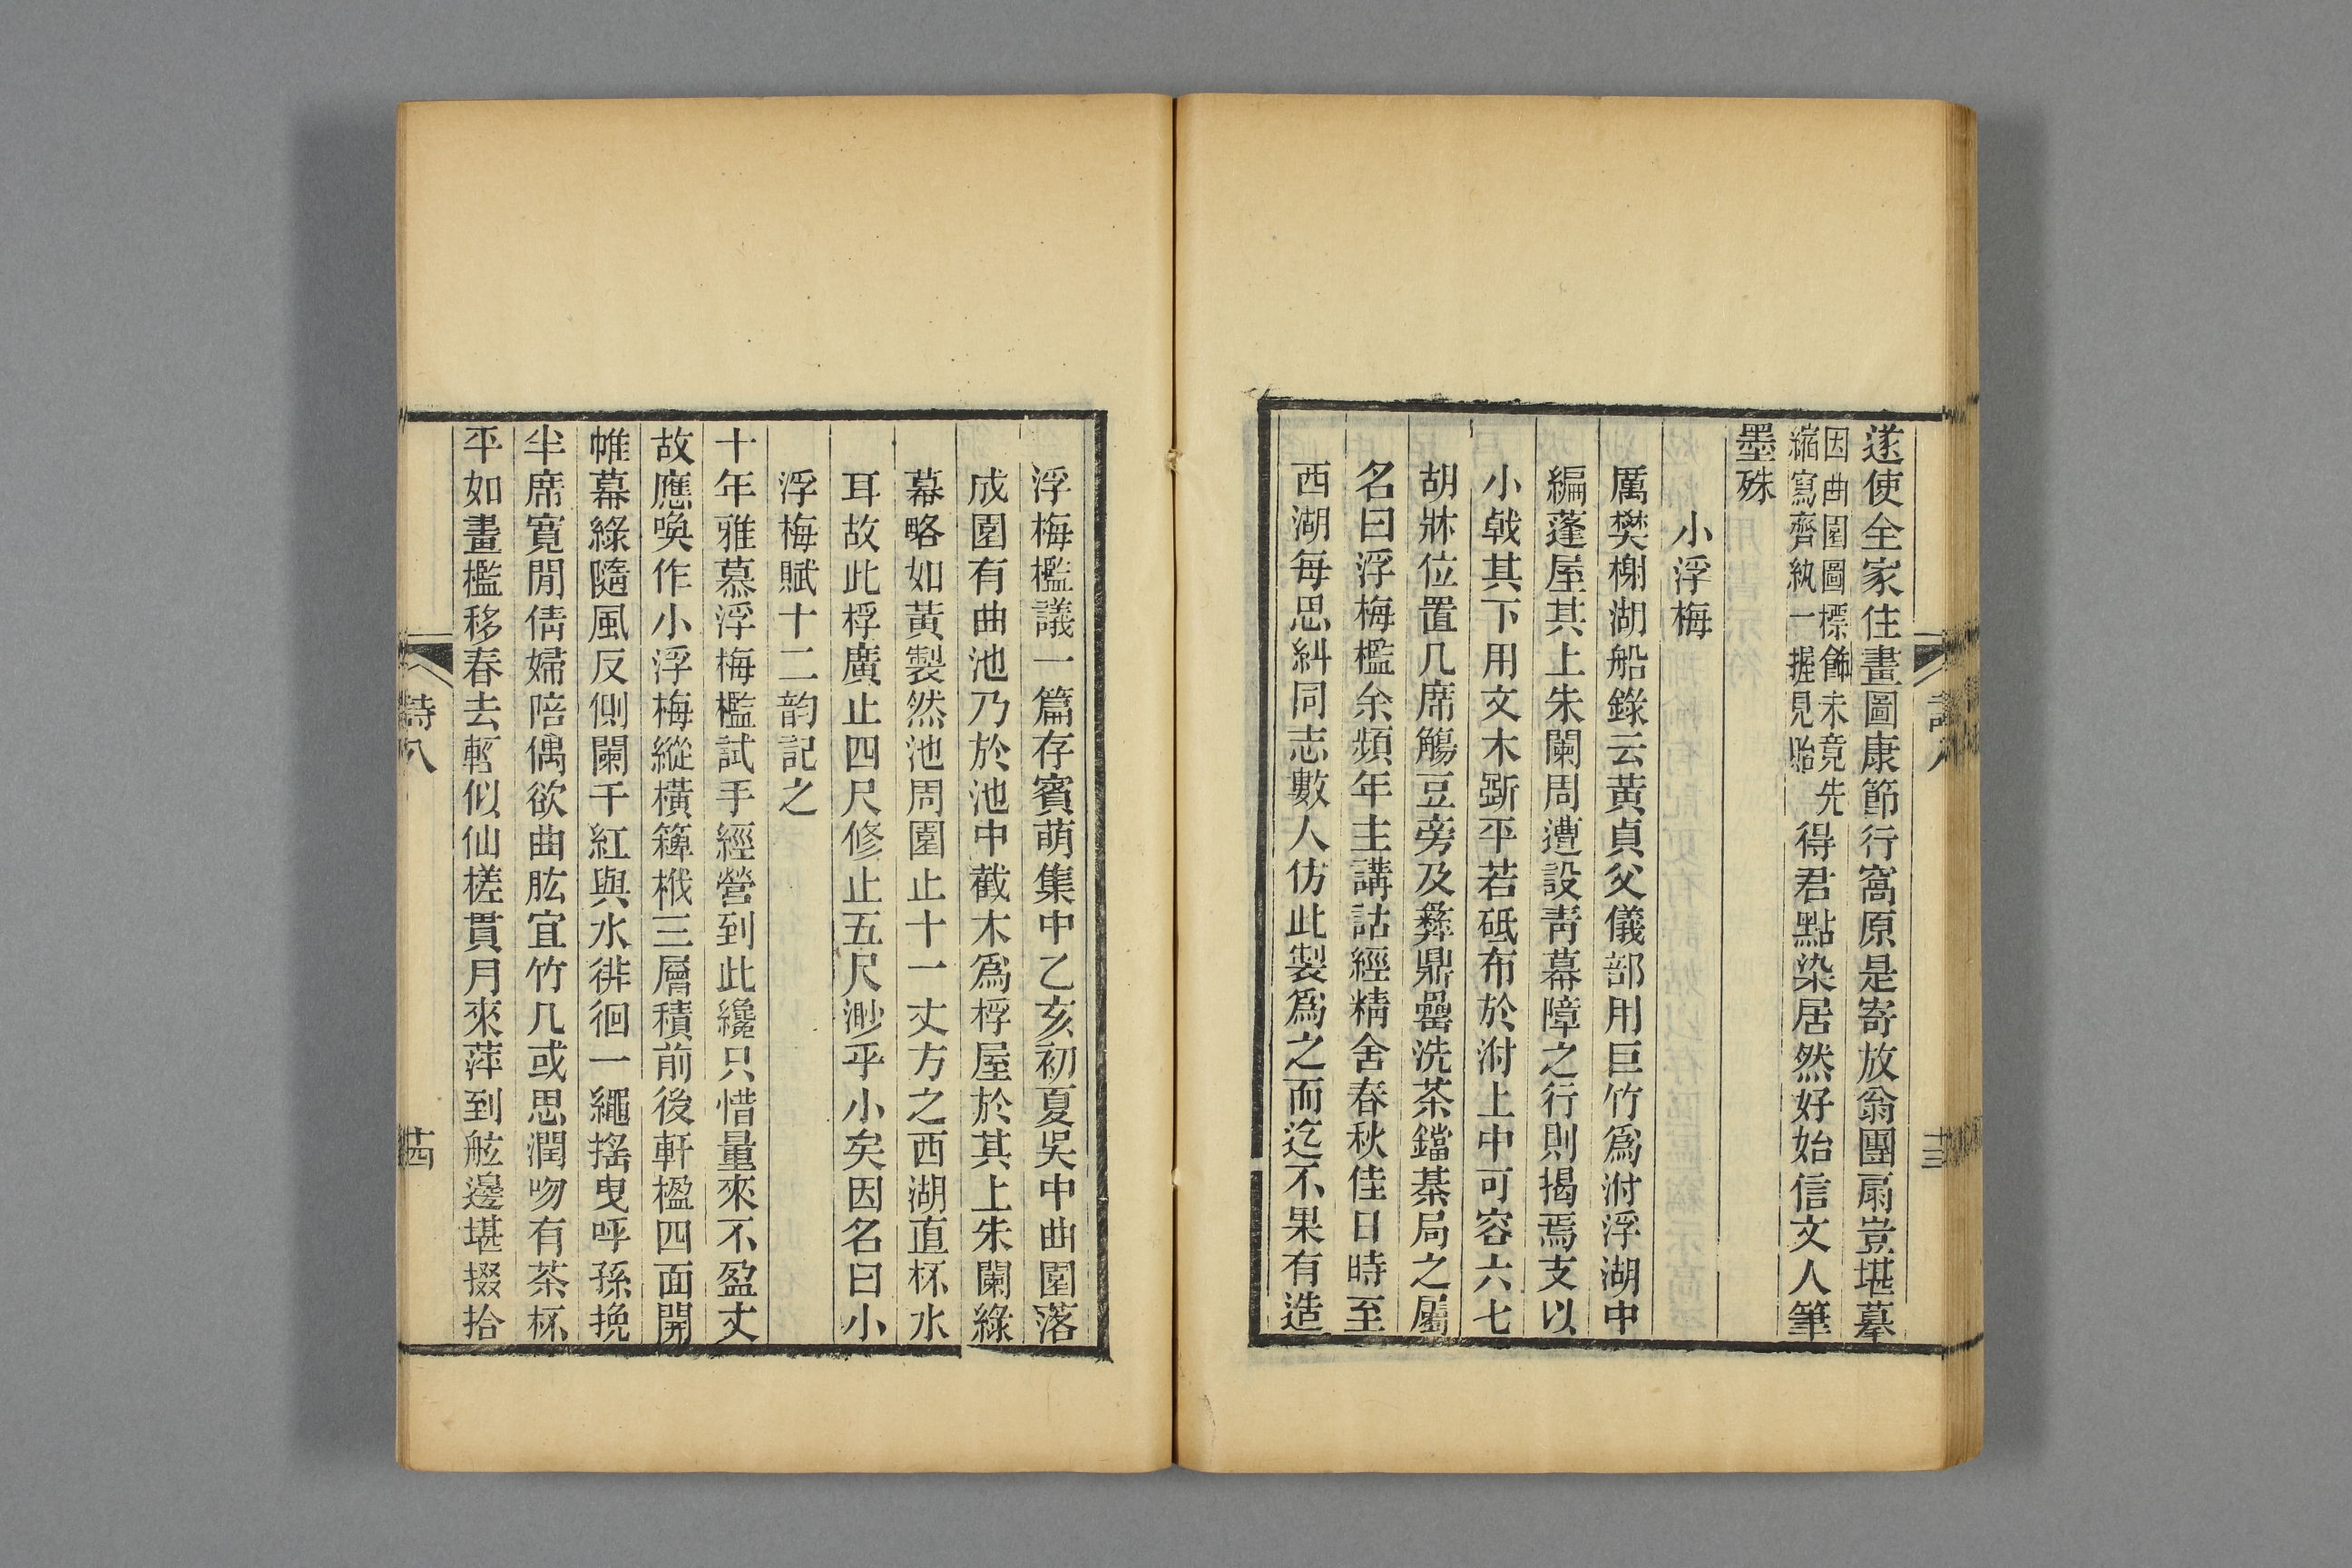 遂使全家住畫圖康節行窩原是寄放翁團扇豈堪摹
因曲園圖標飾未竟先
縮寫齊紈一握見貽
得君點染居然好始信文人筆
墨殊
小浮梅
厲樊榭湖船錄云黃貞父儀部用巨竹爲泭浮湖中
編蓬屋其上朱闌周遭設青幕障之行則揭焉支以
小戟其下用文木斲平若砥布於泭上中可容六七
胡牀位置几席觴豆旁及彝鼎罍洗茶鐺棊局之屬
名曰浮梅檻余頻年主講詁經精舍春秋佳日時至
西湖每思糾同志數人仿此製爲之而迄不果有造
浮梅檻議一篇存賓萌集中乙亥初夏吳中曲園落
成園有曲池乃於池中截木爲桴屋於其上朱闌綠
幕略如黃製然池周圍止十一丈方之西湖直杯水
耳故此桴廣止四尺修止五尺渺乎小矣因名曰小
浮梅賦十二韵記之
十年雅慕浮梅檻試手經營到此纔只惜量來不盈丈
故應喚作小浮梅縱橫簰栰三層積前後軒楹四面開
帷幕綠隨風反側闌干紅與水徘徊一繩搖曳呼孫挽
半席寬閒倩婦陪偶欲曲肱宜竹几或思潤吻有茶杯
平如畫檻移春去暫似仙槎貫月來萍到舷邊堪掇拾
詩八
十四